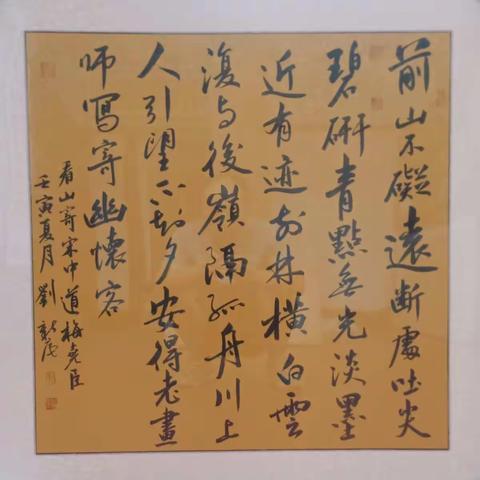 前山不礙遠斷處吐尖
碧研青點無光淡墨
近有迹前林橫白雲
復与後嶺隔孤舟川上
人引望不知夕安得老畫
师寫寄幽懷客
看山寄宋中道梅堯臣
壬寅夏月劉